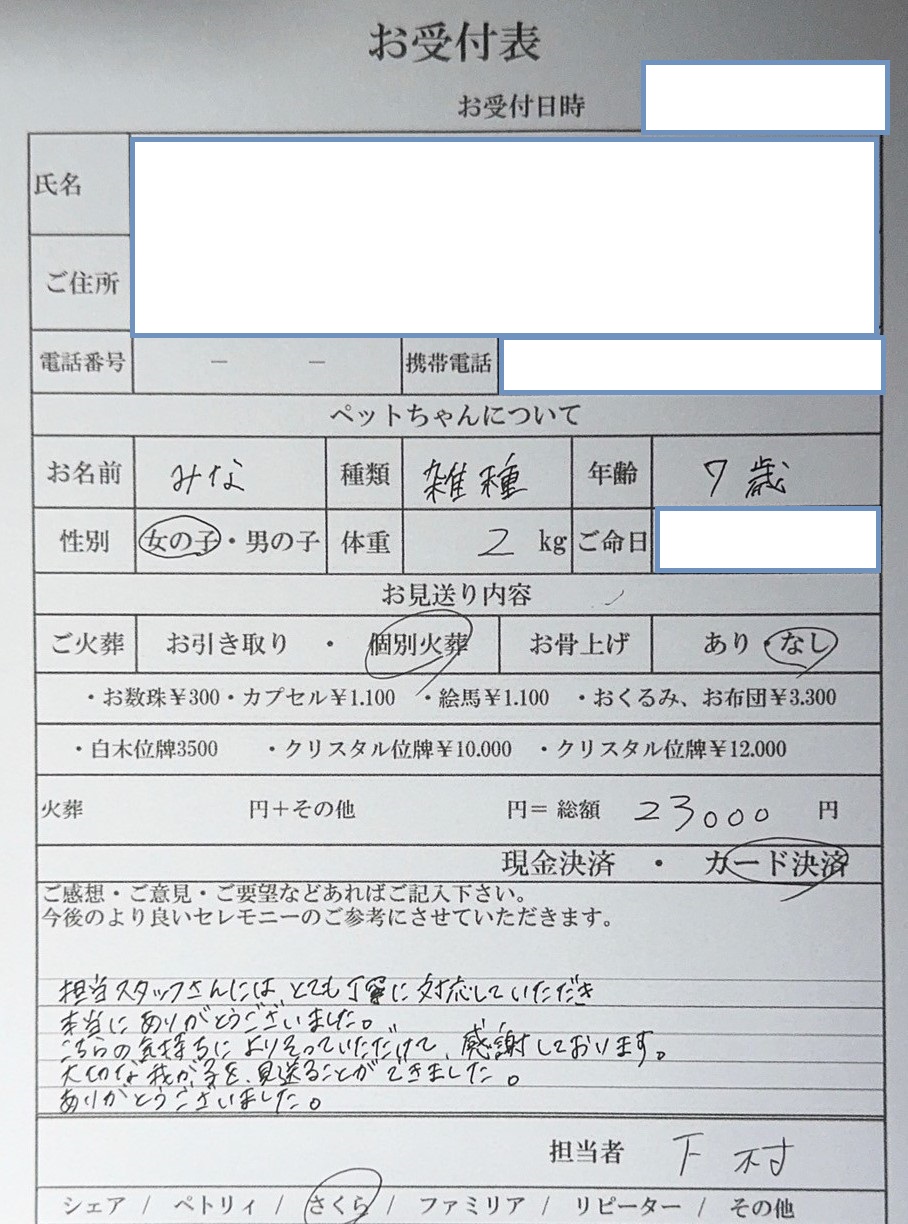 お受付表
お受付日時
氏名
ご住所
電話番号 － － 携帯電話
ペットちゃんについて
お名前 みな 種類 雑種 年齢 7歳
性別 女の子・男の子 体重 2 kg ご命日
お見送り内容
ご火葬 お引き取り ・ 個別火葬 お骨上げ あり・なし
・お数珠¥300・カプセル¥1.100 ・絵馬¥1.100 ・おくるみ、お布団¥3.300
・白木位牌3500 ・クリスタル位牌¥10.000 ・クリスタル位牌¥12.000
火葬 円＋その他 円＝ 総額 23000 円
現金決済 ・ カード決済
ご感想・ご意見・ご要望などあればご記入下さい。
今後のより良いセレモニーのご参考にさせていただきます。
担当スタッフさんには とても丁寧に対応していただき
本当にありがとうございました。
こちらの気持ちによりそっていただけて、感謝しております。
大切な我が子を、見送ることができました。
ありがとうございました。
担当者 下村
シェア / ペトリィ / さくら / ファミリア / リピーター / その他